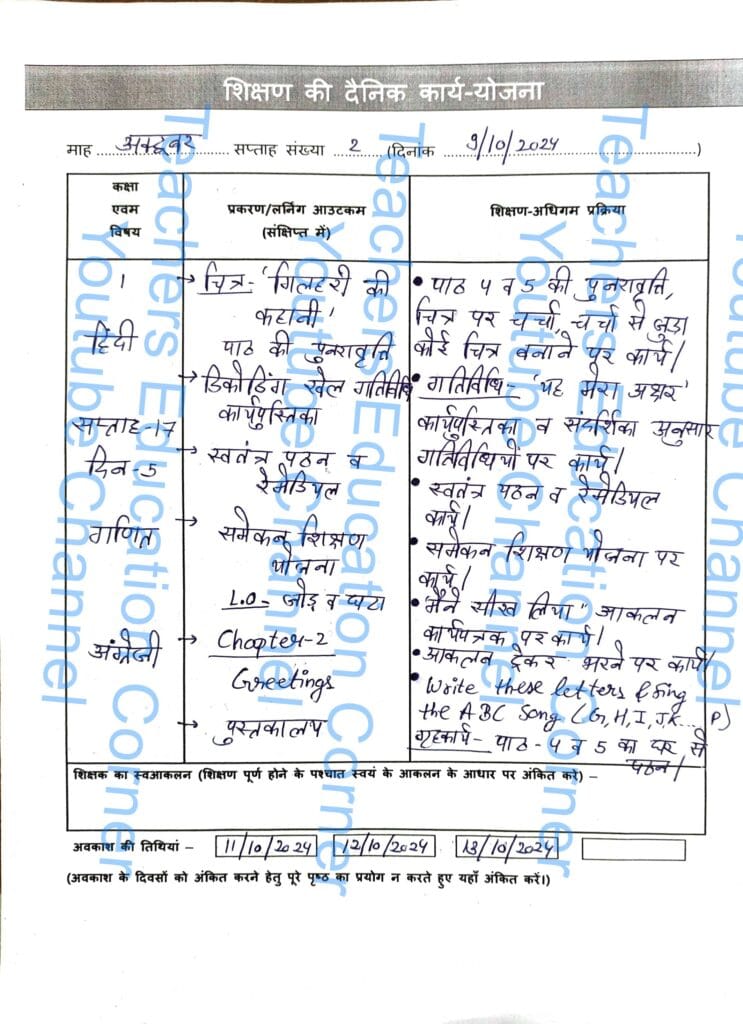 शिक्षण की दैनिक कार्य-योजना
माह अक्टूबर सप्ताह संख्या 2 (दिनांक 9/10/2024)
कक्षा
एवम
विषय
प्रकरण/लर्निंग आउटकम
(संक्षिप्त में)
शिक्षण-अधिगम प्रक्रिया
1
हिंदी
सप्ताह-17
दिन-5
गणित
अंग्रेजी
→ चित्र- 'गिलहरी की
कहानी'
पाठ की पुनरावृत्ति
→ डिकोडिंग खेल गतिविधि
कार्यपुस्तिका
→ स्वतंत्र पठन व
रेमेडियल
→ समेकन शिक्षण
योजना
L.O- जोड़ व घटा
→ Chapter-2
Greetings
→ पुस्तकालय
• पाठ 4 व 5 की पुनरावृत्ति,
चित्र पर चर्चा, चर्चा से जुड़ा
कोई चित्र बनाने पर कार्य।
• गतिविधि- 'यह मेरा अक्षर'
कार्यपुस्तिका व संदर्शिका अनुसार
गतिविधियों पर कार्य।
• स्वतंत्र पठन व रेमेडियल
कार्य।
• समेकन शिक्षण योजना पर
कार्य।
• "मैंने सीख लिया" आकलन
कार्यपत्रक पर कार्य।
• आकलन ट्रेकर भरने पर कार्य।
• Write these letters & sing
the ABC Song (G, H, I, J K... P)
गृहकार्य- पाठ-4 व 5 का घर से
पठन।
शिक्षक का स्वआकलन (शिक्षण पूर्ण होने के पश्चात स्वयं के आकलन के आधार पर अंकित करें) –
अवकाश की तिथियां – 11/10/2024 12/10/2024 13/10/2024
(अवकाश के दिवसों को अंकित करने हेतु पूरे पृष्ठ का प्रयोग न करते हुए यहाँ अंकित करें।)
Teachers Education Corner
Youtube Channel
Teachers Education Corner
Youtube Channel
Teachers Education Corner
Youtube Channel